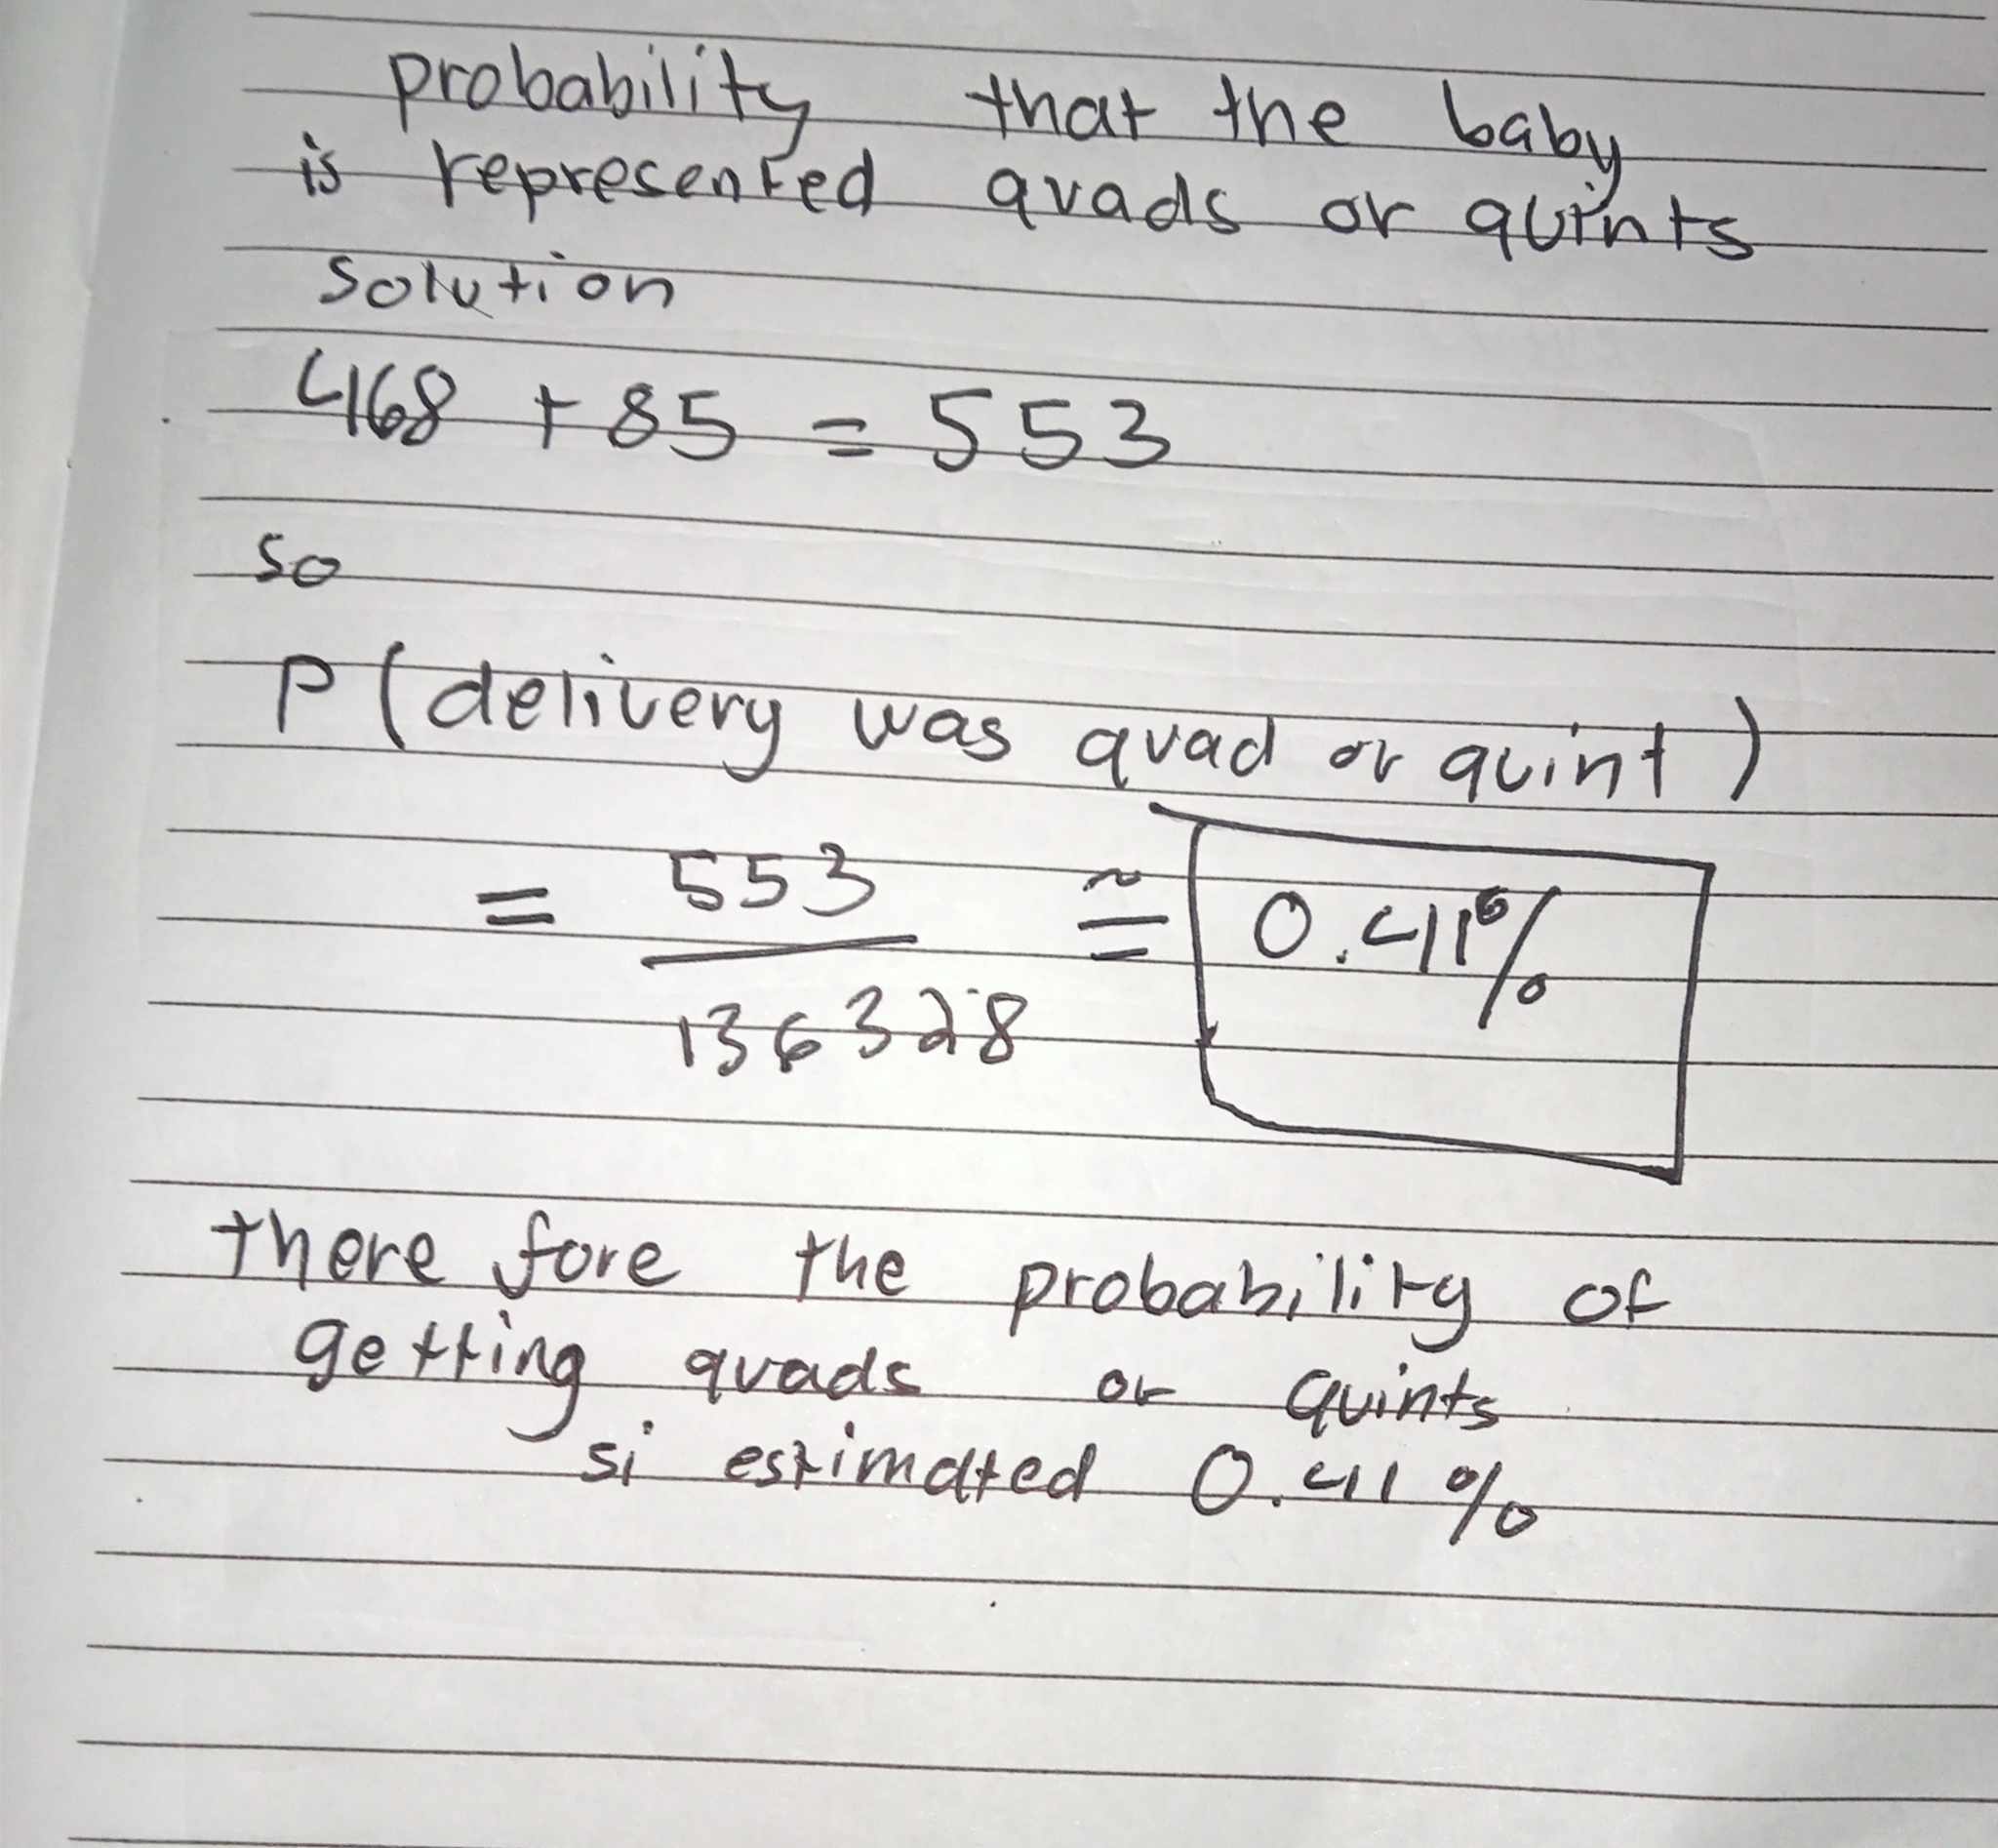 probability that the baby
is represented quads or quints
solution
468 + 85 = 553
so
P (delivery was quad or quint)
= 553 / 136328 ≅ 0.41%
there fore the probability of
getting quads or quints
si estimated 0.41%